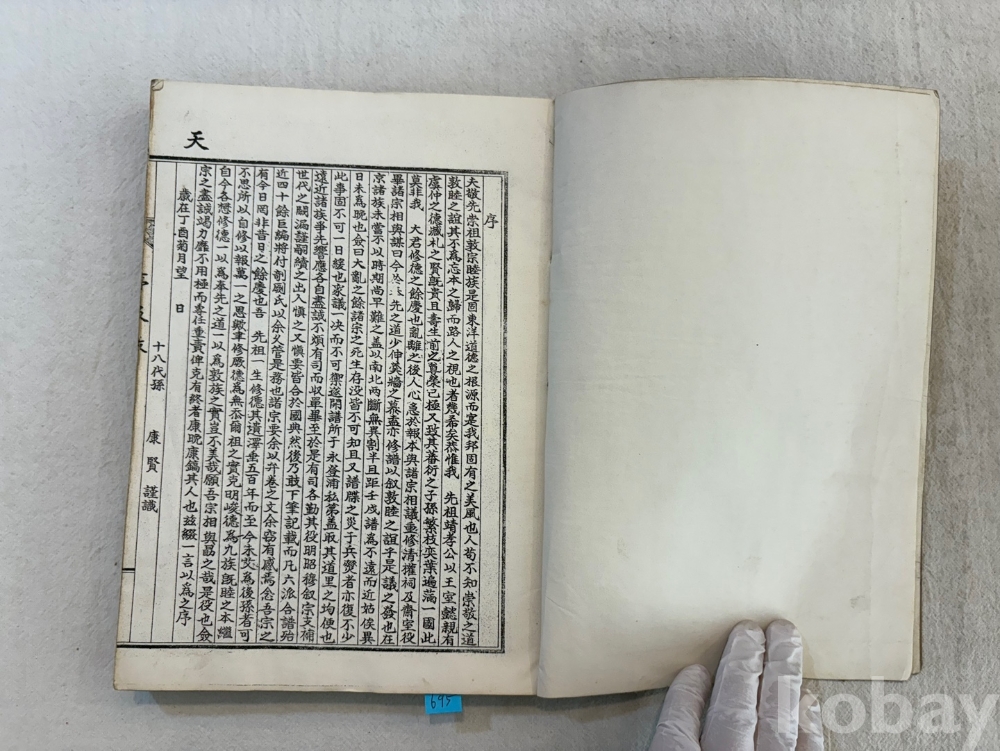 天
序
夫敬先崇祖敦宗睦族是固東洋道德之根源而寔我邦固有之美風也人苟不知崇敬之道
敦睦之誼其不為忘本之歸而路人之視也者幾希矣恭惟我 先祖靖孝公以王室懿親有
虞仲之德臧札之賢旣貴且壽生前之尊榮已極又致其蕃衍之子孫繁枝奕葉遍滿一國此
莫非我 大君修德之餘慶也亂離之後人心急於報本與諸宗相議重修清權祠及齋室役
畢諸宗相與謀曰今 先之道少伸羹墻之慕盍亦修譜以叙敦睦之誼乎是議之發也在
京諸族未嘗不以時期尚早難之盖以南北兩斷無異割半且距壬戌譜為不遠而近姑俟異
日未為晩也僉曰大亂之餘諸宗之死生存沒皆不可知且又譜牒之災于兵燹者亦復不少
此事固不可一日緩也家議一决而不可禦遂開譜所于永登浦私第盖取其道里之均便也
遠近諸族爭先響應各自盡誠不煩有司而收單畢至於是有司各勤其役明昭穆叙宗支補
世代之闕漏謹嗣續之出入愼之又愼要皆合於國典然後乃敢下筆記載而凡六派合譜殆
近四十餘巨編將付剞劂氏以余 管是務也諸宗要余以弁卷之文余窃有感焉念吾宗之
有今日罔非昔日之餘慶也吾 先祖一生修德其遺澤垂五百年而至今未艾為後孫者可
不思所以自修以報萬一之恩歟聿修厥德為無忝爾祖之實克明峻德為九族旣睦之本繼
自今各懋修德一以為奉先之道一以為敦族之實豈不美哉願吾宗相與勗之哉是役也僉
宗之盡誠竭力靡不用極而專任重責俾克有終者康晩康鎬其人也玆綴一言以為之序
歲在丁酉菊月望 日
十八代孫 康賢 謹識
695
kobay